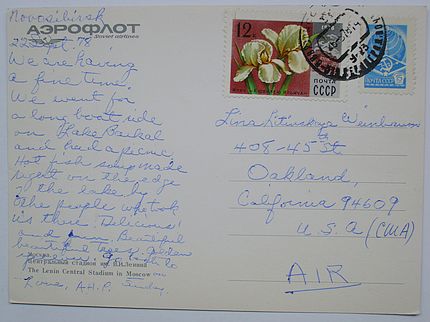 Novosibirsk
АЭРОФЛОТ
Soviet airlines
22 Sept. '78
We are having
a fine time.
We went for
a long boat ride
on Lake Baikal
and had a picnic
Hot fish soup made
right on the edge
of the lake by
the people who took
us there. Delicious!
and fun. Beautiful
beautiful trees, golden
Москва.
Центральный стадион им. В.И.Ленина
The Lenin Central Stadium in Moscow
on
Love, A.H.P. Sunday.
12к
ПОЧТА
СССР
ПОЧТА СССР
Lina Litinskya Weinbaum
408-45 St
Oakland,
California 94609
U.S.A (США)
AIR